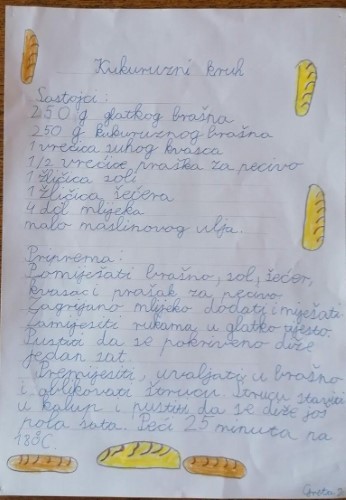 Kukuruzni kruh
Sastojci:
250 g glatkog brašna
250 g kukuruznog brašna
1 vrećica suhog kvasca
1/2 vrećice praška za pecivo
1 žličica soli
1 žličica šećera
4 dcl mlijeka
malo maslinovog ulja.
Priprema:
Pomiješati brašno, sol, šećer,
kvasac i prašak za pecivo.
Zagrijano mlijeko dodati i miješati.
Zamijesiti rukama u glatko tijesto.
Pustiti da se pokriveno diže
jedan sat.
Premijesiti, uvaljati u brašno
i oblikovati štrucu. Štrucu staviti
u kalup i pustiti da se diže još
pola sata. Peći 25 minuta na
180C.